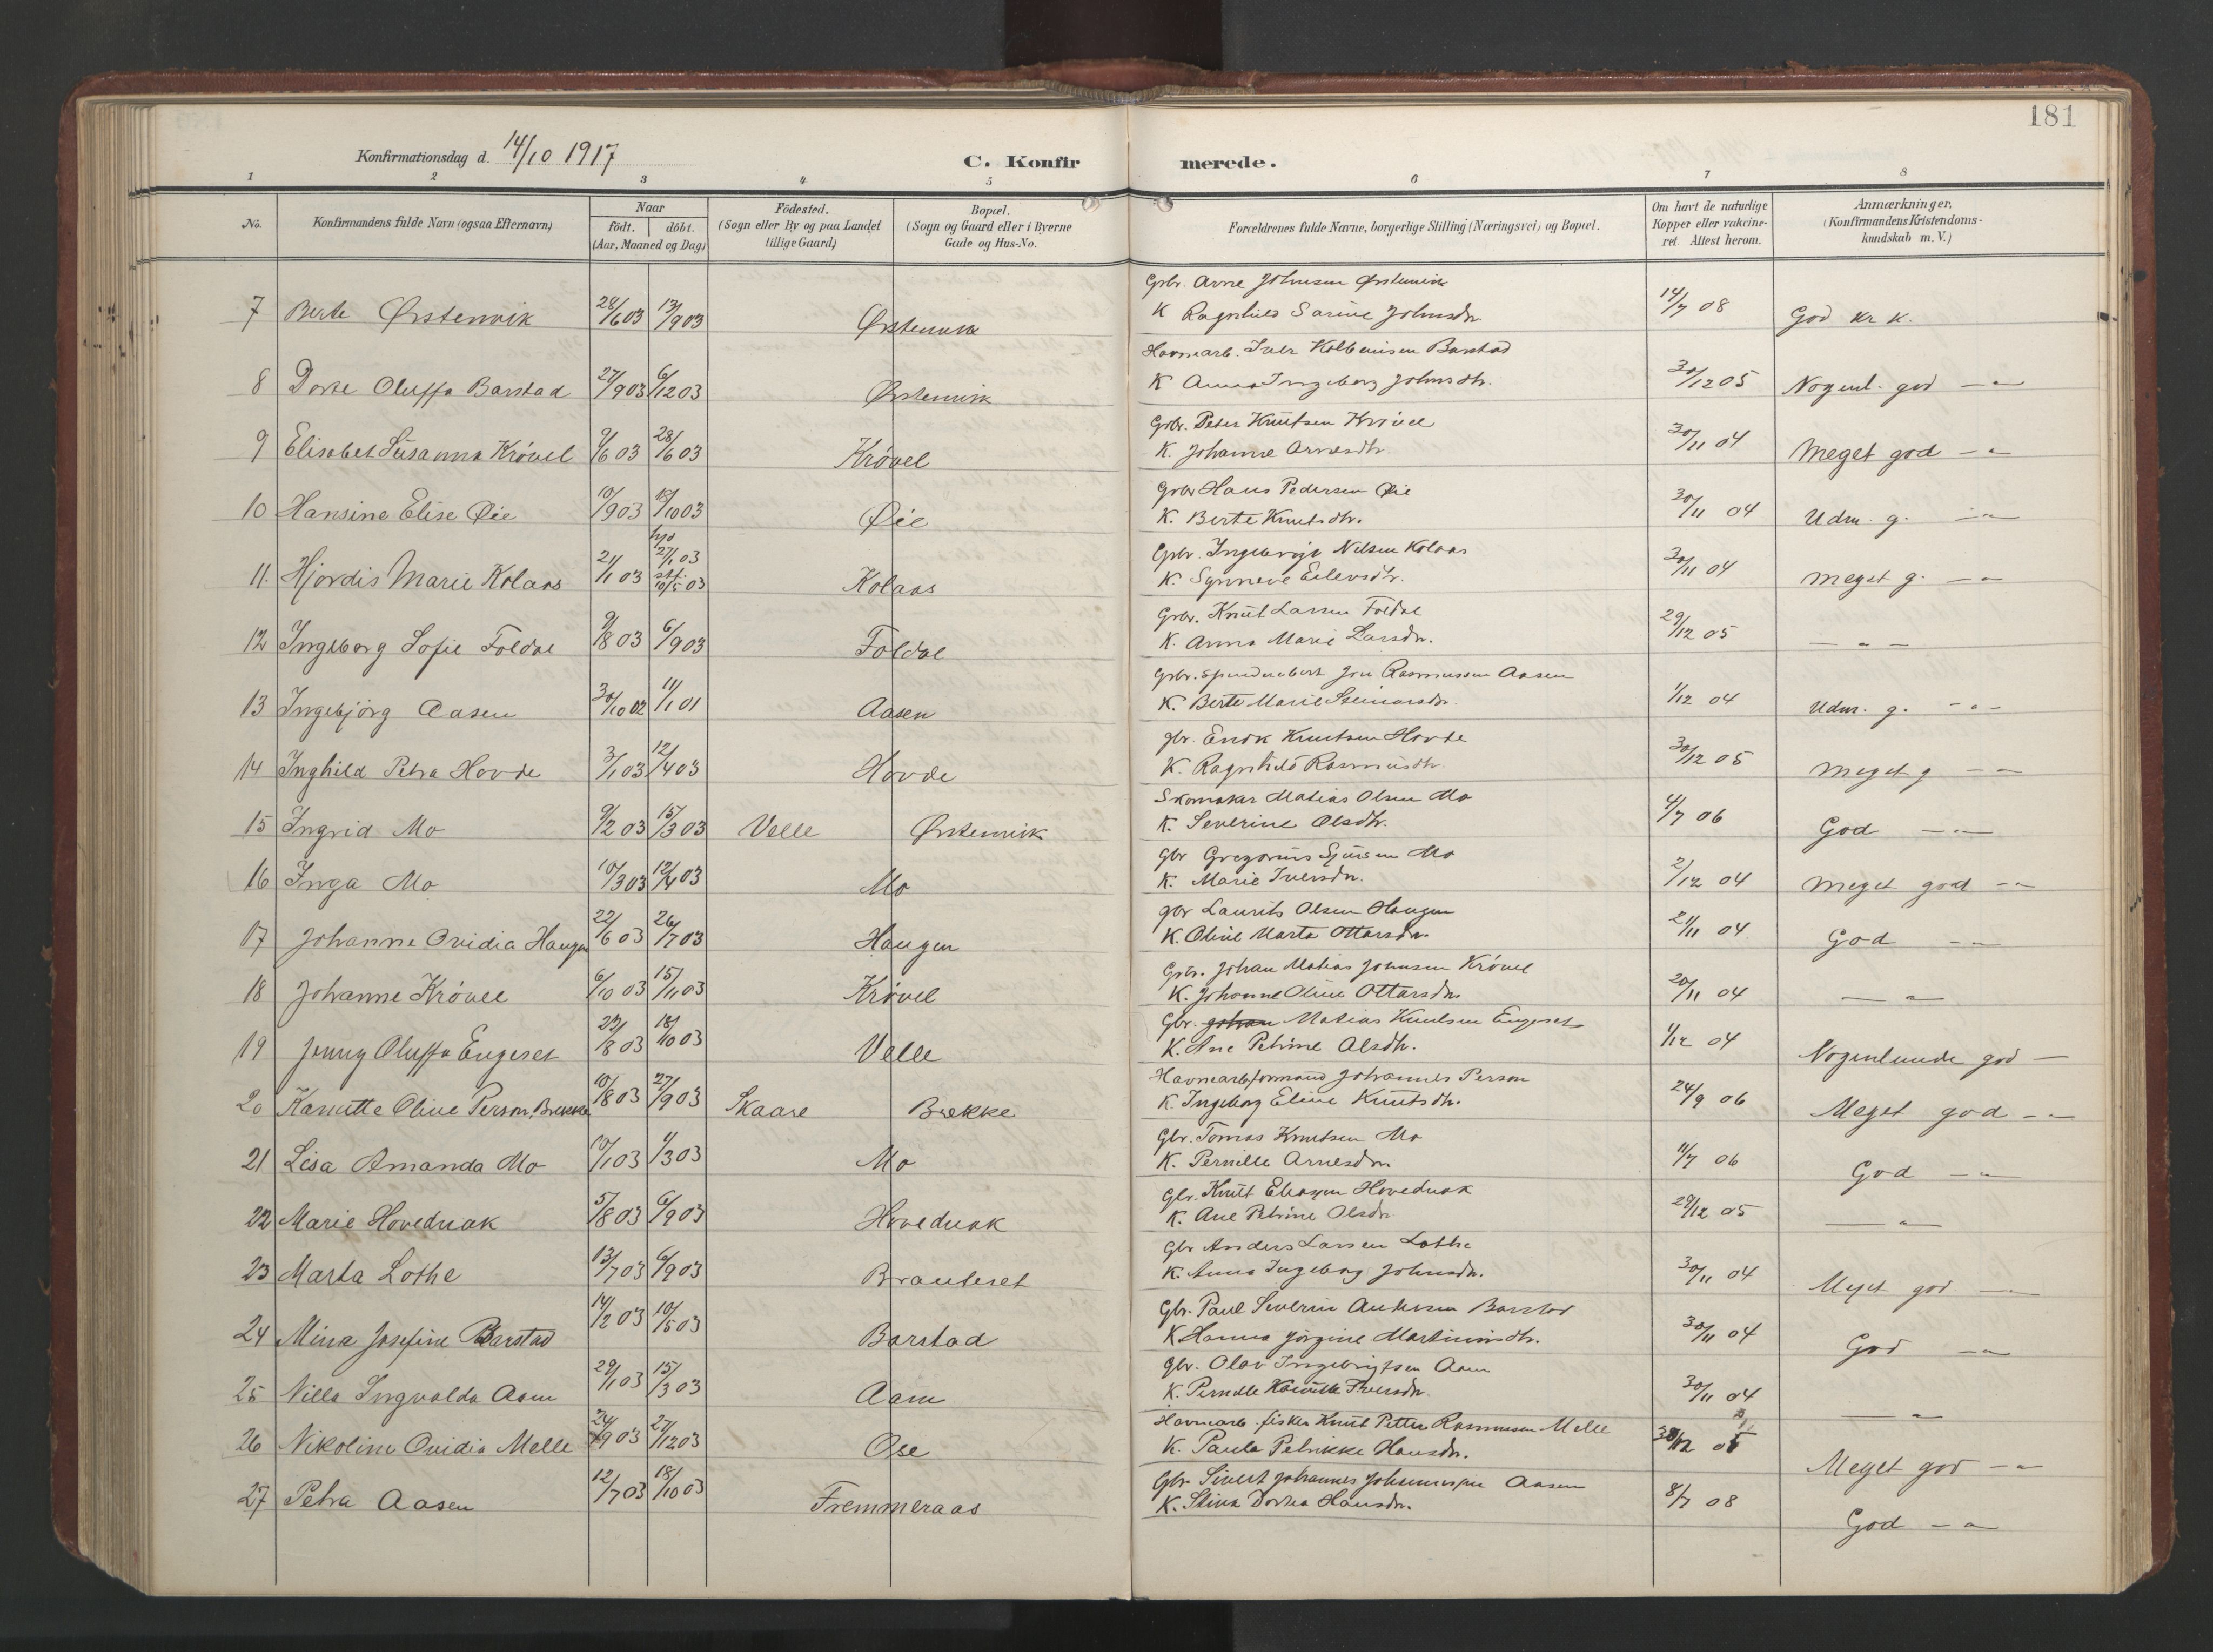 181
Konfirmationsdag d. 14/10 1917
C. Konfir merede.
1 2 3 4 5 6 7 8
No.
Konfirmandens fulde Navn (ogsaa Efternavn)
Naar
födt. döbt.
(Aar, Maaned og Dag)
Födested.
(Sogn eller By og paa Landet
tillige Gaard)
Bopæl.
(Sogn og Gaard eller i Byerne
Gade og Hus-No.
Forældrenes fulde Navne, borgerlige Stilling (Næringsvei) og Bopæl.
Om havt de naturlige
Kopper eller vakcine-
ret. Attest herom.
Anmærkninger.
(Konfirmandens Kristendoms-
kundskab m. V.)
Gbr. Arne Johnsen Ørstenvik
7 Berte Ørstenvik 28/6 03 13/9 03 Ørstenvik K Ragnhild Sarine Johnsdr. 14/7 08 God kr k.
Havnearb. Iver Kolbeinsen Barstad
8 Dorte Oluffa Barstad 27/9 03 6/12 03 Ørstenvik K Anna Ingeborg Johnsdtr. 30/12 05 Nogenl. god — " —
Gbr. Peter Knutsen Krövel
9 Elisabet Susanna Krövel 9/6 03 28/6 03 Krövel K. Johanne Arnesdtr. 30/11 04 Meget god — "
Gbr Hans Pedersen Øie
10 Hansine Elise Øie 10/9 03 18/10 03 Øie K. Berte Knutsdtr. 30/11 04 Udm. g. — " —
Gbr. Ingebrigt Nilsen Kolaas
11. Hjördis Marie Kolaas 21/1 03 hjd 27/1 03 stf. 10/5 03 Kolaas K. Synneve Eilevsdtr. 30/11 04 Meget g. — " —
Gbr. Knut Larsen Foldal
12 Ingeborg Sofie Foldal 9/8 03 6/9 03 Foldal K. Anna Marie Larsdr. 29/12 05 — " —
Gbr. Jon Rasmussen Aasen
13 Ingebjörg Aasen 30/10 02 11/1 01 Aasen K. Berte Marie Steinarsdr. 1/12 04 Udm. g. — " —
Gbr. Enok Knutsen Hovde
14 Inghild Petra Hovde 3/1 03 12/4 03 Hovde K. Ragnhild Rasmusdtr. 30/12 05 Meget g — " —
Skomaker Matias Olsen Mo
15 Ingrid Mo 9/2 03 15/3 03 Velle Ørstenvik K. Severine Olsdtr. 4/7 06 God — " —
Gbr Gregorius Sjursen Mo
16 Inga Mo 10/3 03 12/4 03 Mo K. Marie Iversdr. 2/12 04 Meget god — " —
gbr Laurits Olsen Haugen
17 Johanne Ovidia Haugen 22/6 03 26/7 03 Haugen K. Oline Marta Ottarsdr. 21/11 04 God — " —
Gbr. Johan Matias Johnsen Krövel
18 Johanne Krövel 6/10 03 15/11 03 Krövel K. Johanne Oline Ottarsdr. 20/11 04 — " —
Gbr. Johan Matias Knutsen Engeset
19 Jenny Oluffa Engeset 23/8 03 18/10 03 Velle K. Ane Petrine Olsdtr. 1/12 04 Nogenlunde god —
Havnearbformand Johannes Person
20 Kanutte Oline Person, Brekke 10/8 03 27/9 03 Skaare Brekke K. Ingeborg Eline Knutsdtr. 24/9 06 Meget god — " —
Gbr. Tomas Knutsen Mo
21 Lisa Amanda Mo 10/1 03 1/3 03 Mo K. Pernille Arnesdr. 11/7 06 God — " —
Gbr. Knut Eliasen Hovednak
22 Marie Hovednak 5/8 03 6/9 03 Hovednak K. Ane Petrine Olsdr. 29/12 05 — " —
Gbr Anders Larsen Lothe
23 Marta Lothe 13/7 03 6/9 03 Brauteset K. Anna Ingeborg Johnsdr. 30/11 04 Meget god — " —
Gbr. Paul Severin Andersen Barstad
24 Mina Josefine Barstad 14/2 03 10/5 03 Barstad K Hanna Jörgine Martinusdtr. 30/11 04 God — " —
Gbr. Olav Ingebrigtsen Aam
25 Nilla Ingvalda Aam 29/1 03 15/3 03 Aam K. Pernille Iversdr. 30/11 04 — " —
Havnearb. fisker Knut Petter Rasmussen Melle
26 Nikoline Ovidia Melle 24/9 03 27/12 03 Ose K. Paula Petrikke Hansdr. 30/12 05 Meget god — " —
Gbr. Sivert Johannes Johannessen Aasen
27 Petra Aasen 12/7 03 18/10 03 Fremmeraas K. Stina Dortea Hansdr. 8/7 08 God — " —